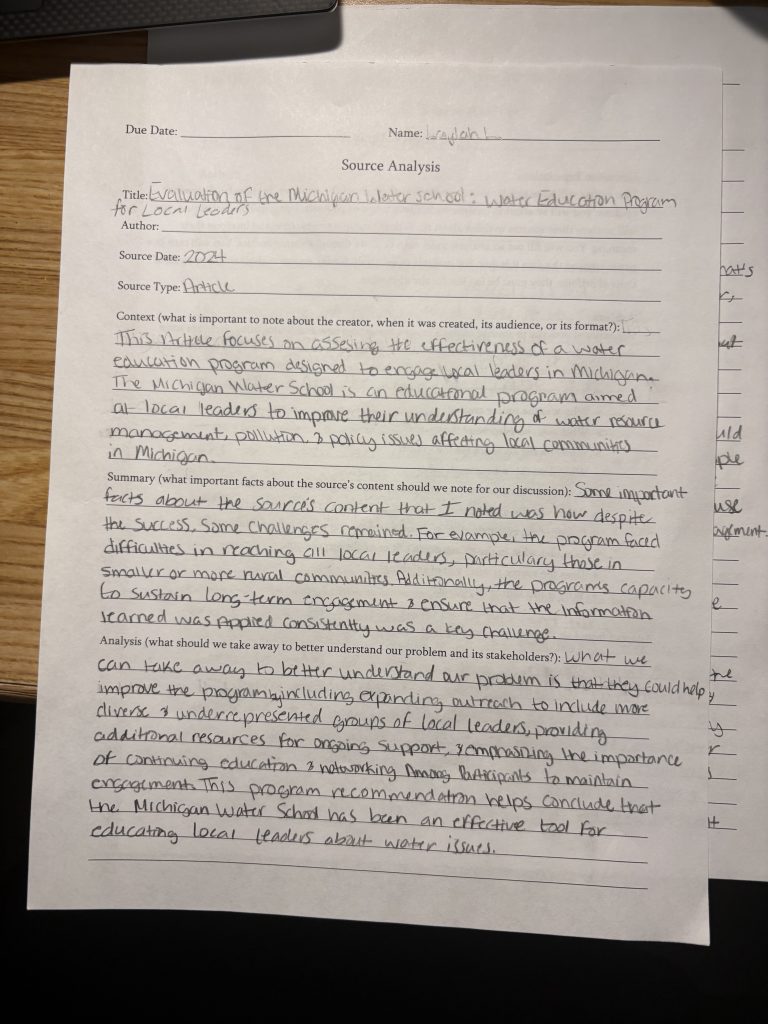 Due Date: Name:
Source Analysis
Title: Evaluation of the Michigan Water School: Water Education Program
for Local Leaders
Author:
Source Date: 2024
Source Type: Article
Context (what is important to note about the creator, when it was created, its audience, or its format?):
This Article focuses on assesing the effectiveness of a water
education program designed to engage local leaders in Michigan.
The Michigan Water School is an educational program aimed
at local leaders to improve their understanding of water resource
management, pollution, & policy issues affecting local communities
in Michigan.
Summary (what important facts about the source's content should we note for our discussion): Some important
facts about the source's content that I noted was how despite
the success, some challenges remained. For example, the program faced
difficulties in reaching all local leaders, particulary those in
smaller or more rural communities. Additionally, the programs capacity
to sustain long-term engagement & ensure that the information
learned was applied consistently was a key challenge.
Analysis (what should we take away to better understand our problem and its stakeholders?): What we
can take away to better understand our problem is that they could help
improve the program by including expanding outreach to include more
diverse & underrepresented groups of local leaders, providing
additional resources for ongoing support, & emphasizing the importance
of continuing education & networking Among Participants to maintain
engagement. This program recommendation helps conclude that
the Michigan Water School has been an effective tool for
educating local leaders about water issues.